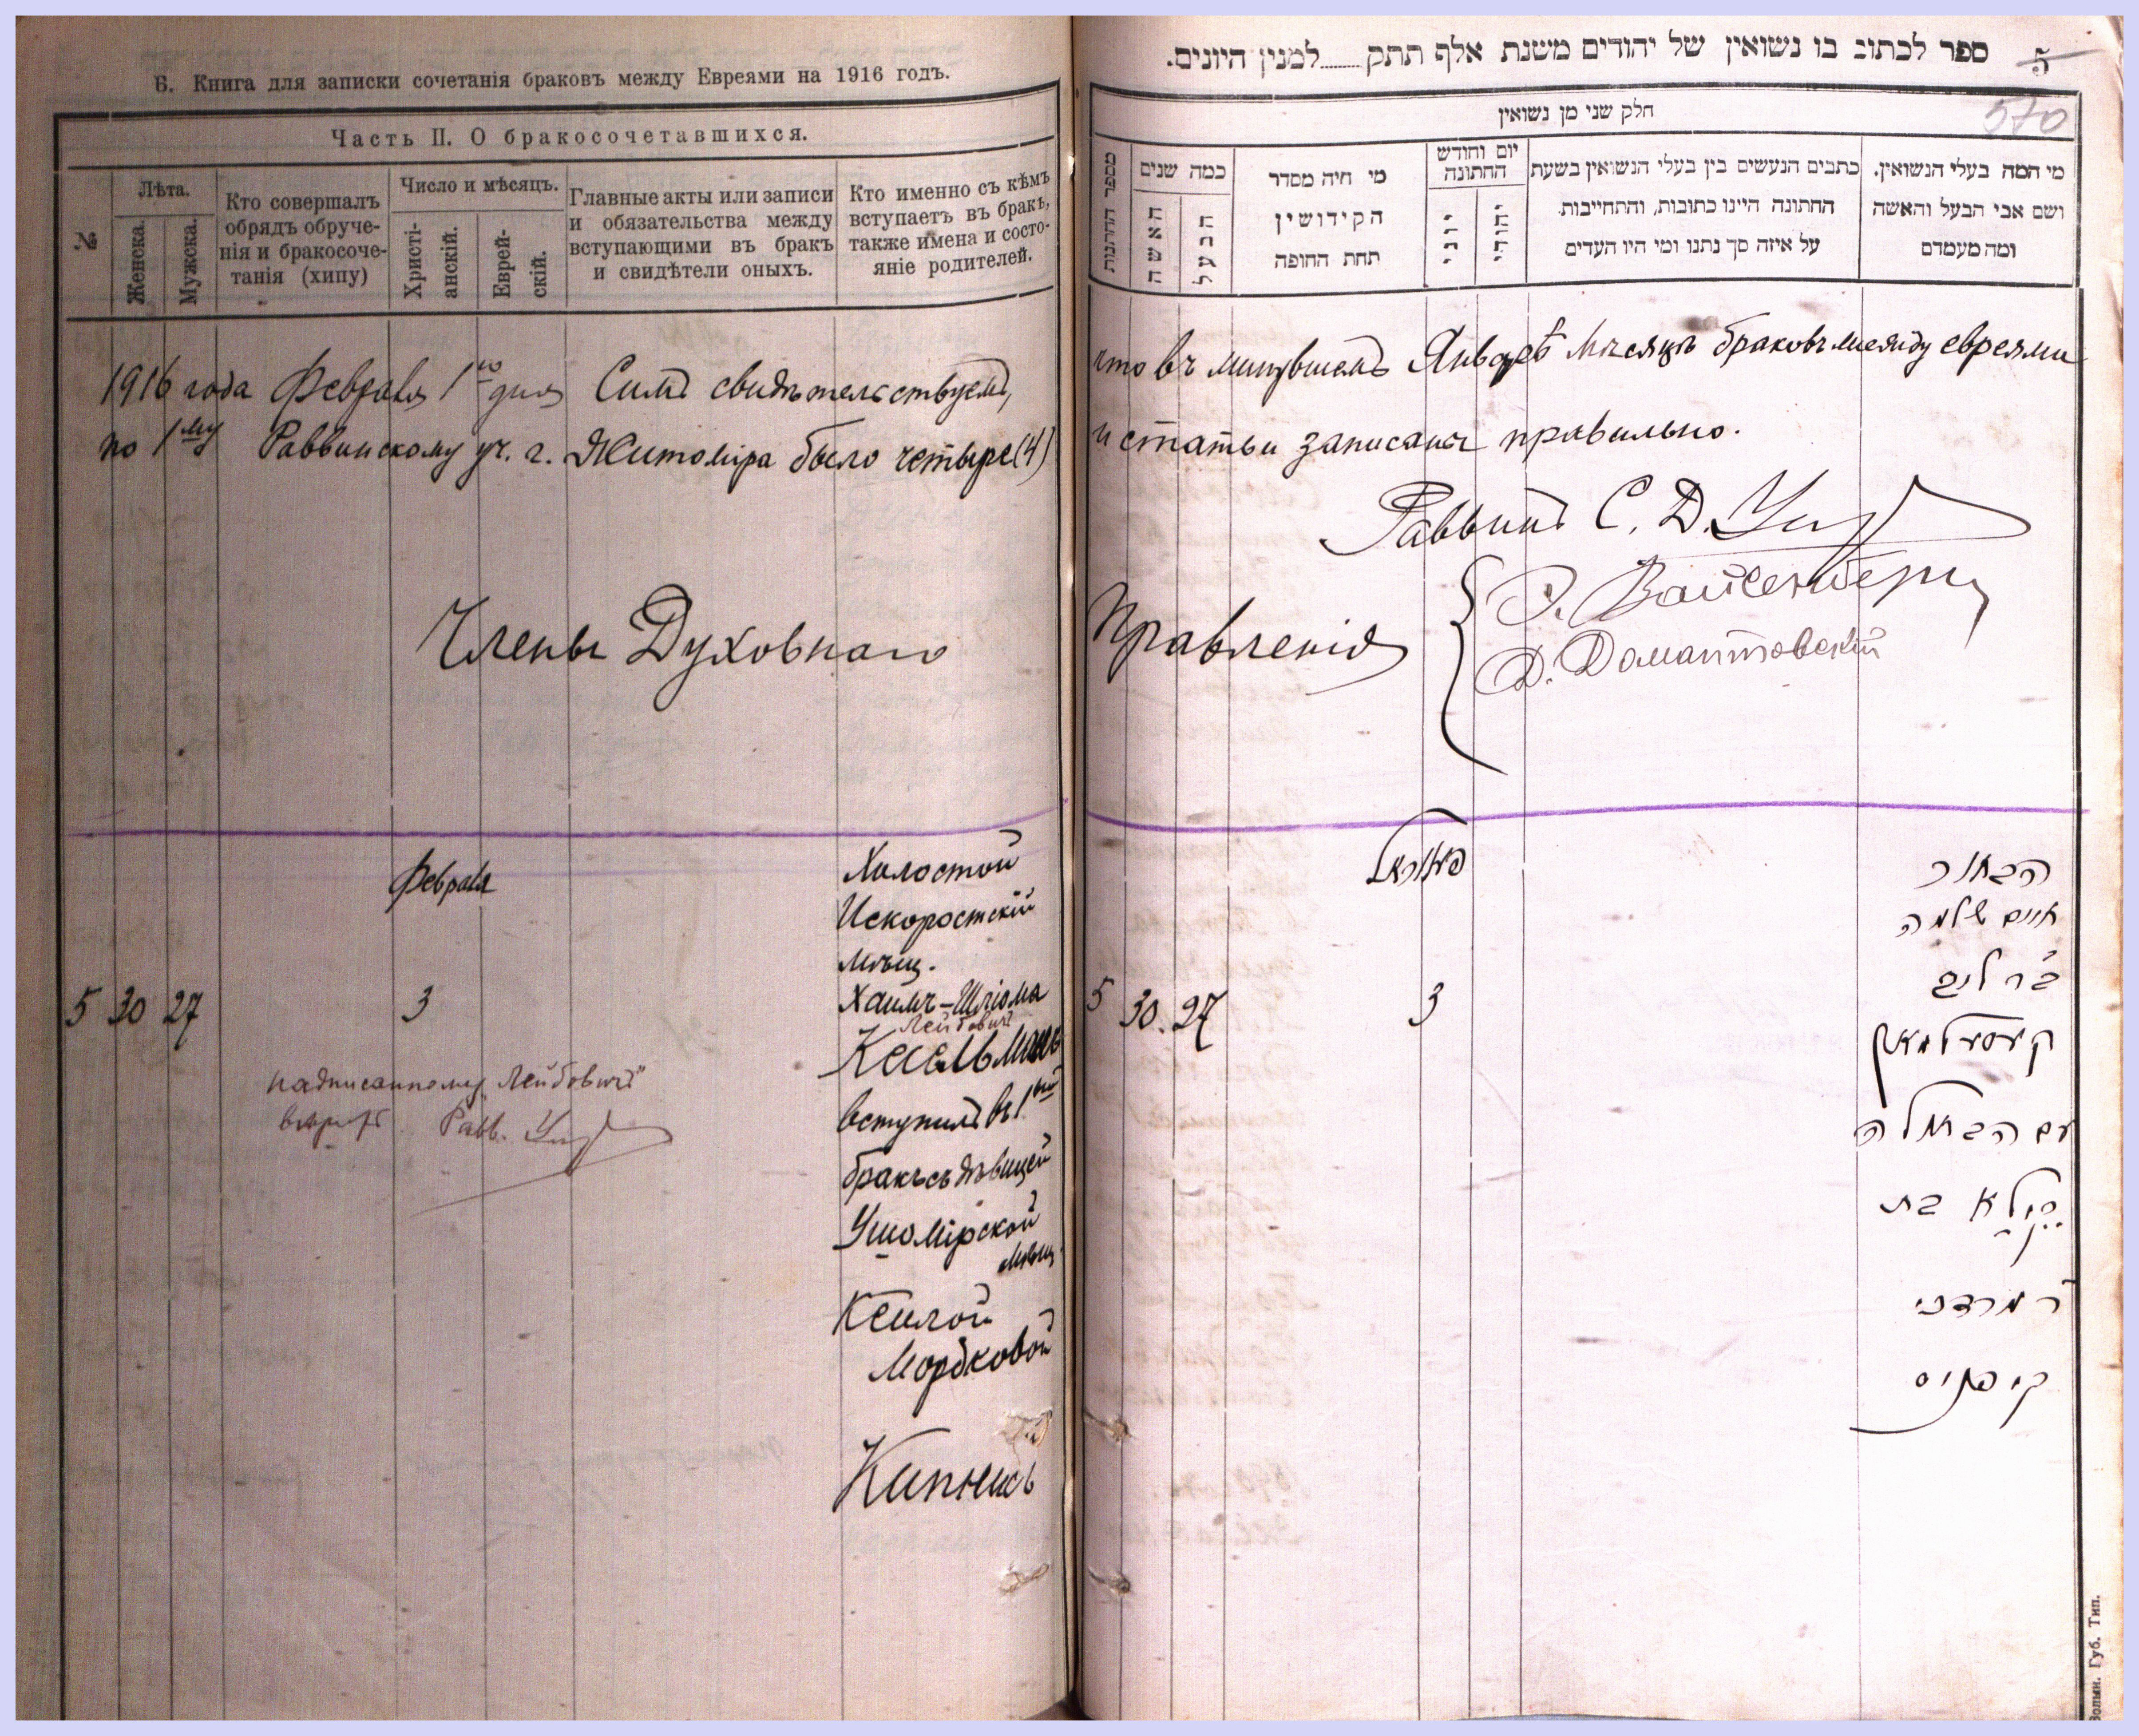 Б. Книга для записки сочетанія браковъ между Евреями на 1916 годъ.
Часть II. О бракосочетавшихся.
№
Лѣта.
Женска.
Мужска.
Кто совершалъ
обрядъ обруче-
нія и бракосоче-
танія (хипу)
Число и мѣсяцъ.
Христі-
анскій.
Еврей-
скій.
Главные акты или записи
и обязательства между
вступающими въ бракъ
и свидѣтели оныхъ.
Кто именно съ кѣмъ
вступаетъ въ бракъ,
также имена и состо-
яніе родителей.
1916 года Февраля 1го дня Симъ свидѣтельствуемъ,
по 1му Раввинскому уч. г. Житоміра было четыре (4)
Члены Духовнаго
Февраля
5 30 27
3
Холостой
Искоростскій
мѣщ.
Хаимъ-Шлiома
Лейбовичъ
Кесельманъ
вступилъ въ 1ый
бракъ съ дѣвицей
Ушомірской
мѣщ.
Кейлой
Мордковой
Кипнисъ
надписанному „Лейбовичъ"
вѣрить Равв.
ספר לכתוב בו נשואין של יהודים משנת אלף תתק......למנין היונים.
5
570
חלק שני מן נשואין
מספר החתונות
כמה שנים
האשה
הבעל
מי היה מסדר
הקידושין
תחת החופה
יום וחודש
החתונה
יוני
יהודי
כתבים הנעשים בין בעלי הנשואין בשעת
החתונה היינו כתובות, והתחייבות.
על איזה סך נתנו ומי היו העדים
מי המה בעלי הנשואין.
ושם אבי הבעל והאשה
ומה מעמדם
что въ минувшемъ Январѣ мѣсяцѣ браковъ между евреями
и статьи записаны правильно.
Раввинъ С. Д.
Правленія
Вайсенберг
Д. Домантовскій
פעווראל
5 30. 27
3
הבחור
חיים שלמה
בר ליב
קעסעלמאן
עם הבתולה
קילא בת
ר מרדכי
קיפניס
Волын. Губ. Тип.